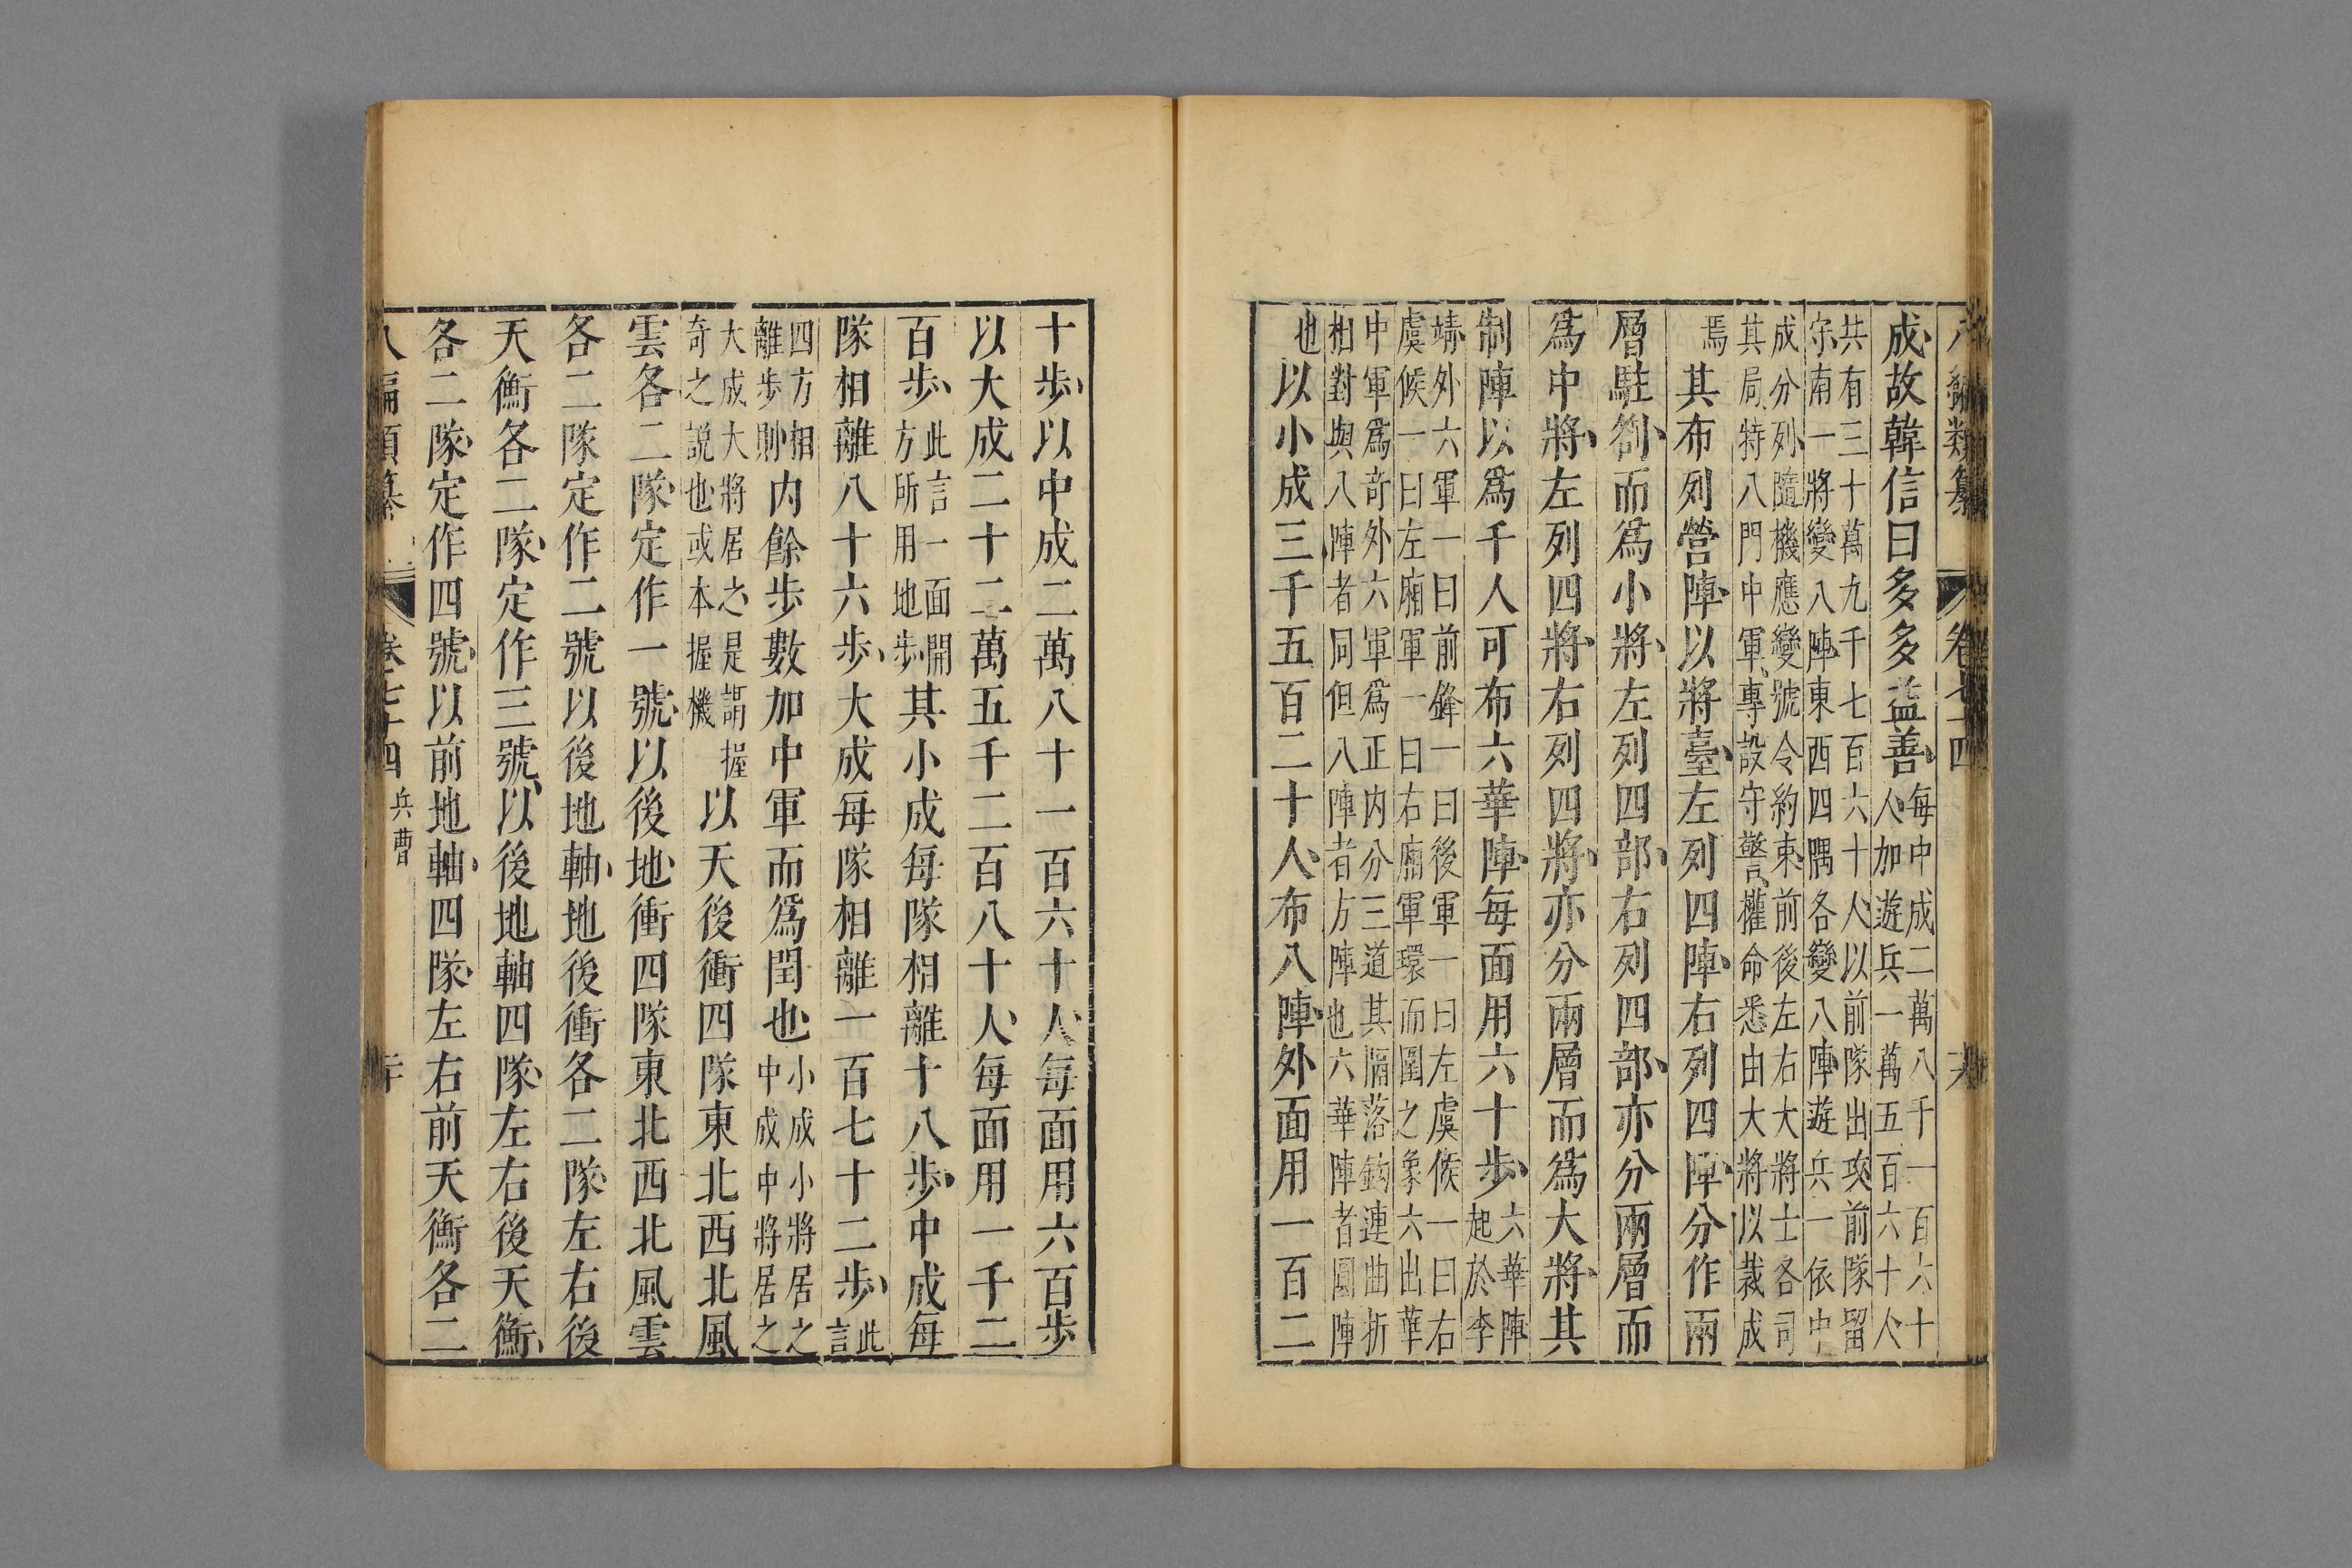 八編類纂 卷七十四 六
成故韓信曰多多益善每中成二萬八千一百六十人加遊兵一萬五百六十人
共有三十萬九千七百六十人以前隊出攻前隊留守南一將變八陣東西四隅各變八陣遊兵一依中
成分列隨機應變號令約束前後左右大將士各司其局特八門中軍專設守警權命悉由大將以裁成
焉其布列營陣以將臺左列四陣右列四陣分作兩
層駐劄而爲小將左列四部右列四部亦分兩層而
爲中將左列四將右列四將亦分兩層而爲大將其
制陣以爲千人可布六華陣每面用六十步六華陣起於李
靖外六軍一曰前鋒一曰後軍一曰左虞候一曰右虞候一曰左廂軍一曰右廂軍環而圍之象六出華
中軍爲奇外六軍爲正内分三道其隔落鈎連曲折相對與八陣者同但八陣者方陣也六華陣者圓陣
也以小成三千五百二十人布八陣外面用一百二
十步以中成二萬八十一百六十人每面用六百步
以大成二十二萬五千二百八十人每面用一千二
百步此言一面開方所用地步其小成每隊相離十八步中成每
隊相離八十六步大成每隊相離一百七十二步此言
四方相離步則内餘步數加中軍而爲閏也小成小將居之中成中將居之
大成大將居之是謂握奇之說也或本握機以天後衝四隊東北西北風
雲各二隊定作一號以後地衝四隊東北西北風雲
各二隊定作二號以後地軸地後衝各二隊左右後
天衡各二隊定作三號以後地軸四隊左右後天衡
各二隊定作四號以前地軸四隊左右前天衡各二
八編類纂 卷七十四 兵曹